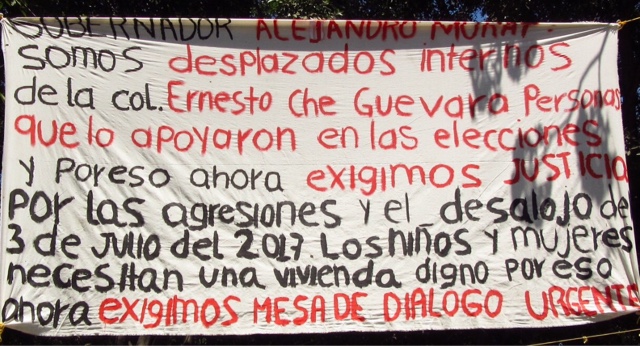 GOBERNADOR ALEJANDRO MURAT:
somos desplazados internos
de la col. Ernesto Che Guevara Personas
que lo apoyaron en las elecciones
y Por eso ahora exigimos JUSTICIA
Por las agresiones y el desalojo de
3 de Julio del 2017. Los niños y mujeres
necesitan una vivienda digno por eso
ahora exigimos MESA DE DIALOGO URGENTE